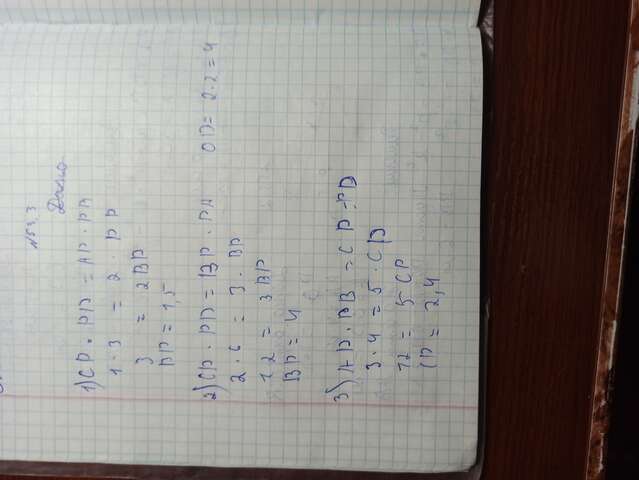 №53,3
Дано
1) CP · PD = AP · PB
1 · 3 = 2 · PB
3 = 2BP
BP = 1,5
2) CP · PD = BP · PA OD = 2·2=4
2 · 6 = 3 · BP
12 = 3BP
BP = 4
3) AP · PB = CP · PD
3 · 4 = 5 · CP
12 = 5 CP
CP = 2,4